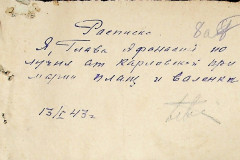 Расписка
Я, Глава Афанасий по
лучил от Карловской при
марии плащ и валенки
13/I 43 г.